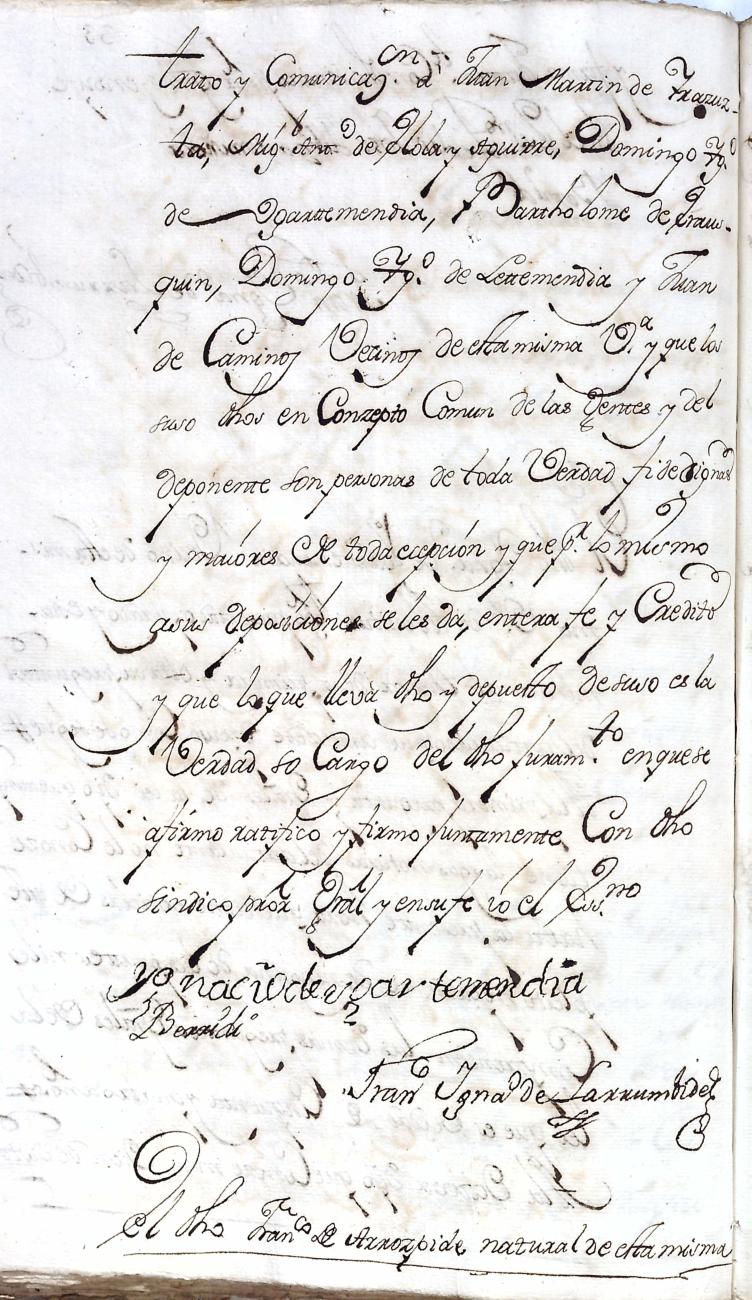 trato y Comunicaçon. a Juan Martin de Yrazuz-
ta, Mig.l Ant.o de Olola y Aguirre, Domingo Yg.o
de Ugarttemendia, Bartholome de Eraus-
quin, Domingo Yg.o de Lettemendia y Juan
de Caminos Vecinos de esta misma V.a y que los
suso dhos en Conzepto Comun de las Gentes y del
deponente son personas de toda Verdad fidedignas
y maiores de toda ecepción y que p.r lo mismo
a sus deposiciones se les da, entera fe y Credito
y que lo que lleva dho y depuesto de suso es la
Verdad so Cargo del dho juram.to en que se
afirmo ratifico y firmo juntamente Con dho
sindico pror Gral y en su fe io el Ess.no
ygnacio de ugartemendia
Fran.co Ygna.o de Larrumbide
El dho Fran.co de Arrozpide natural de esta misma